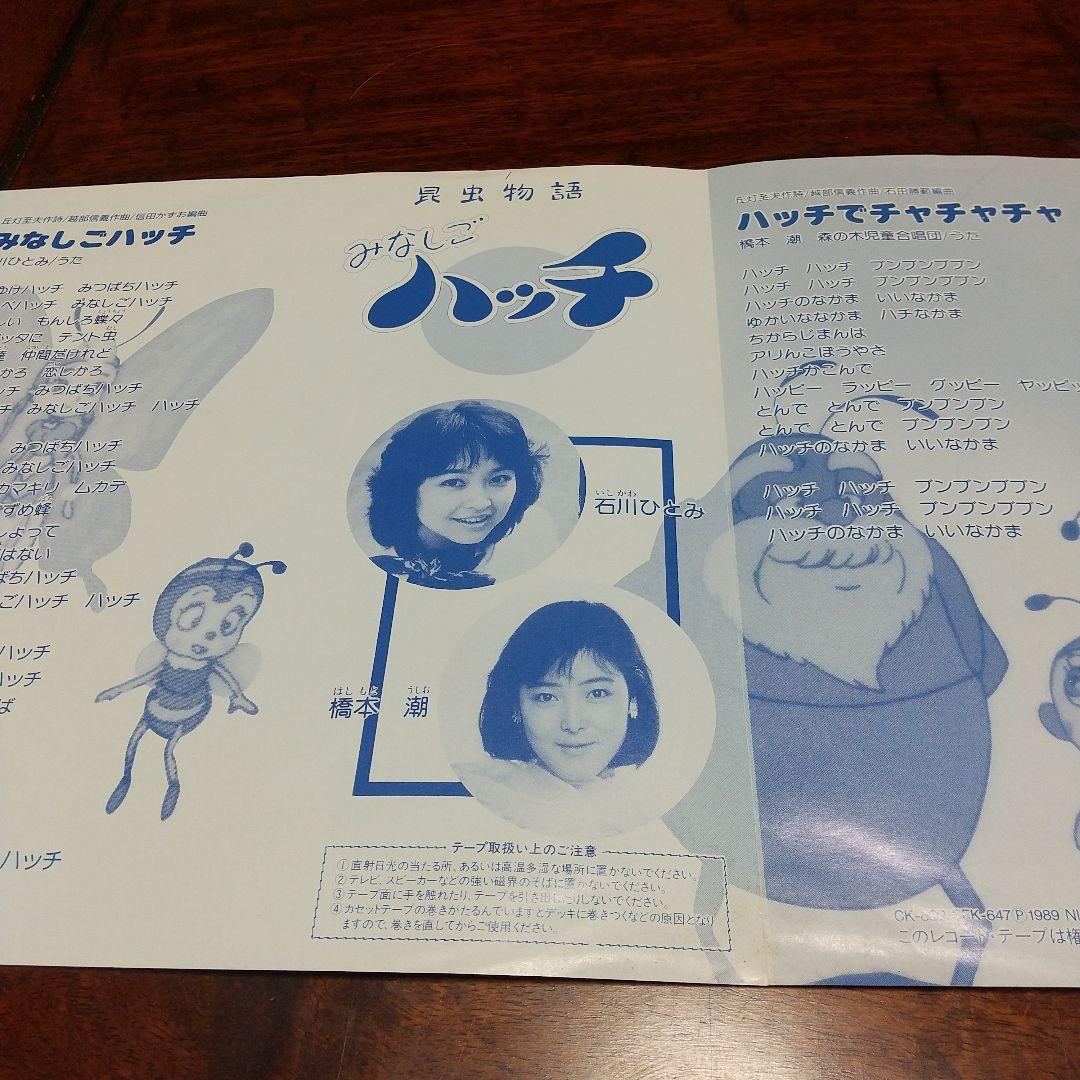 丘灯至夫作詩/越部信義作曲/信田かずお編曲
みなしごハッチ
川ひとみ/うた
ゆけハッチ　みつばちハッチ
ベハッチ　みなしごハッチ
しい　もんしろ蝶々
ッタに　テント虫
仲間だけれど
かろ　恋しかろ
ッチ　みつばちハッチ
チ　みなしごハッチ　ハッチ
みつばちハッチ
みなしごハッチ
カマキリ　ムカデ
すずめ蜂
しよって
はない
ばちハッチ
ごハッチ　ハッチ
ハッチ
ハッチ
ば
ハッチ
昆虫物語
みなしご
ハッチ
いしかわ
石川ひとみ
はしもと　うしお
橋本　潮
テープ取扱い上のご注意
①直射日光の当たる所、あるいは高温多湿な場所に置かないでください。
②テレビ、スピーカーなどの強い磁界のそばに置かないでください。
③テープ面に手を触れたり、テープを引き出したりしないでください。
④カセットテープの巻きがたるんでいますとデッキに巻きつくなどの原因となり
ますので、巻きを直してからご使用ください。
丘灯至夫作詩/越部信義作曲/石田勝範編曲
ハッチでチャチャチャ
橋本　潮　森の木児童合唱団/うた
ハッチ　ハッチ　ブンブンブブン
ハッチ　ハッチ　ブンブンブブン
ハッチのなかま　いいなかま
ゆかいななかま　ハチなかま
ちからじまんは
アリんこぼうやさ
ハッチかこんで
ハッピー　ラッピー　グッピー　ヤッピッ
とんで　とんで　ブンブンブン
とんで　とんで　ブンブンブン
ハッチのなかま　いいなかま
ハッチ　ハッチ　ブンブンブブン
ハッチ　ハッチ　ブンブンブブン
ハッチのなかま　いいなかま
K-647 Ⓟ 1989 NI
このレコード・テープは権